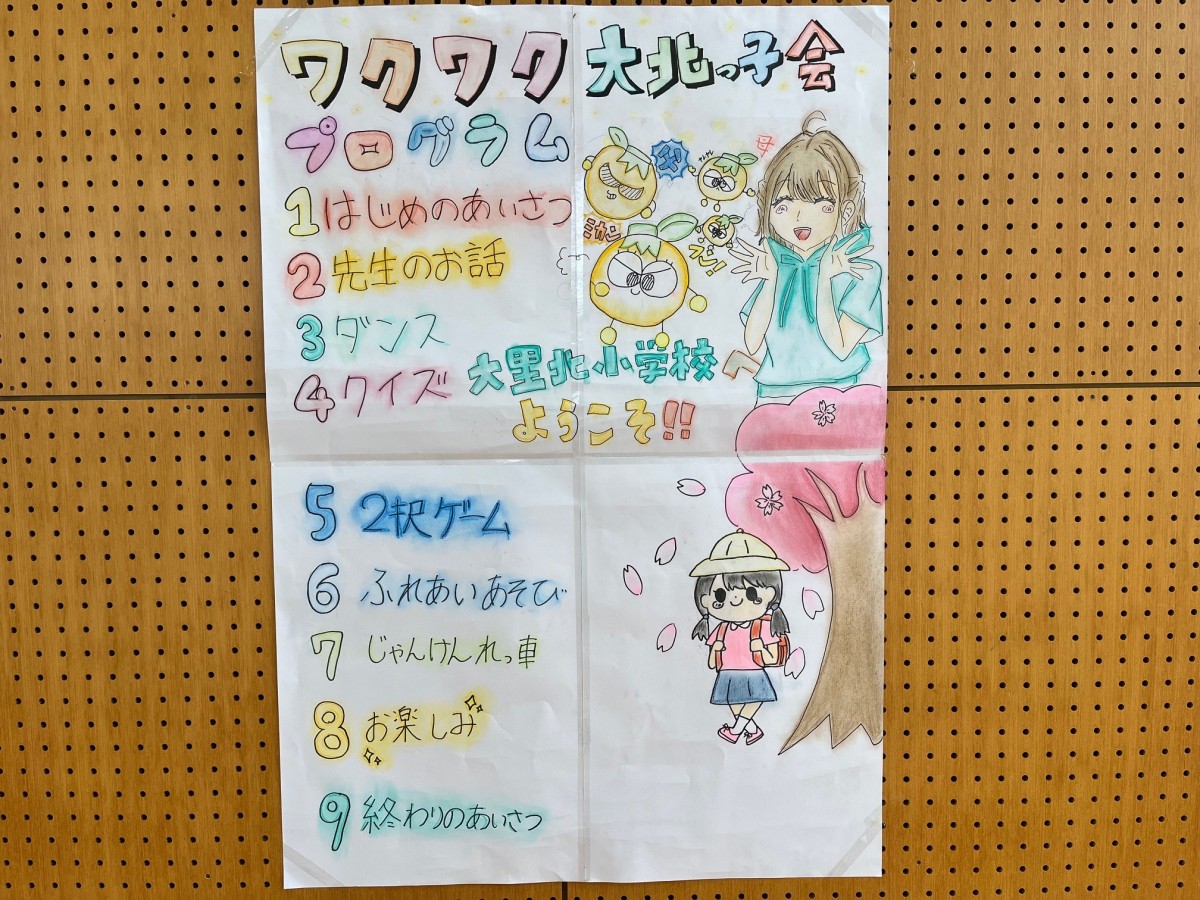 ワクワク 大北っ子会
プログラム
1 はじめのあいさつ
2 先生のお話
3 ダンス
4 クイズ
大里北小学校へ
ようこそ!!
5 2択ゲーム
6 ふれあいあそび
7 じゃんけんれっ車
8 お楽しみ
9 終わりのあいさつ
父
母
ミカン